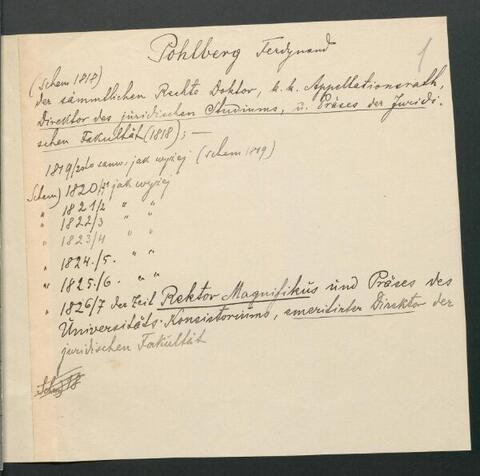 1
Pohlberg Ferdynand
(Schem 1818)
der sämmtlichen Rechte Doktor, k. k. Appellationsrath,
Direktor des juridischen Studiums, u. Präses der Juridi-
schen Fakultät (1818); —
1819/20 to samo, jak wyżej (Schem 1819)
Schem) 1820/1 jak wyżej
" 1821/2 " "
" 1822/3 " "
" 1823/4 " "
" 1824/5. " "
" 1825/6. " "
" 1826/7 der Zeit Rektor Magnifikus und Präses des
Universitäts-Konsistoriums, emeritirter Direktor der
juridischen Fakultät